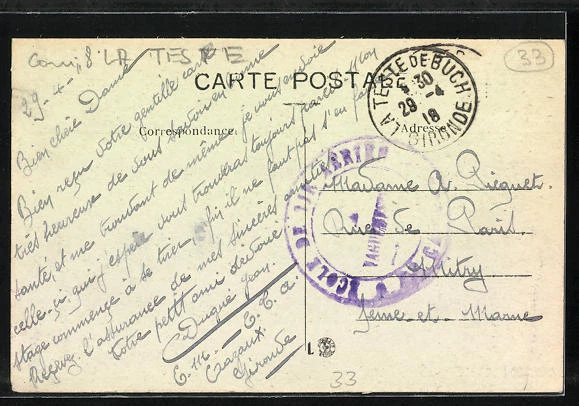 Corr. 8 LA TESTE
33
CARTE POSTALE
Correspondance
Adresse
LA TESTE DE BUCH
30
29 - 4
18
GIRONDE
29-4-
Bien chère Dame
Bien reçu votre gentille carte
très heureuse de vous savoir en bonne
santé, et me trouvant de même je vous envoie
celle-ci qui j'espère vous trouvera toujours pareil. Mon
stage commence à se tirer il ne faut pas s'en faire
Recevez l'assurance de mes sincères amitiés
Votre petit ami dévoué
Duqué Jean
E. T. A.
Cazaux
Gironde
ECOLE DE TIR AERIEN
CAZAUX
Madame A. Riguet.
Rue de Paris.
Mitry
Seine-et-Marne
33